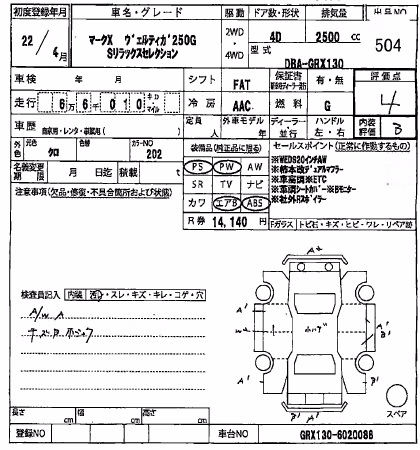 初度登録年月
車名・グレード
駆動
ドア数・形状
排気量
出品NO
22/4月
マークX ヴェルティガ250G
Sリラックスセレクション
2WD
・
4WD
4D
2500 cc
型式
DBA-GRX130
504
車検 年 月
シフト
FAT
保証書
有・無
評価点
4
走行
6万6千010キロ
マイル
冷房
AAC
燃料
G
車歴
自家用・レンタ・事業用( )
定員
人
外車モデル
年
ディーラー
・
並行
ハンドル
左・右
内装
評価
B
外色
元色
クロ
色替
カラーNO
202
装備品(純正品に限る)
セールスポイント(正常に作動するもの)
名義変更
期限
月 日迄
積載
t
PS PW AW
SR TV ナビ
カワ エアB ABS
※WEDS20インチAW
※柿本改デュアルマフラー
※車高調※ETC
※革調シートカバー※Bモニター
※社外Rスポイラー
注意事項(欠品・修復・不具合箇所および状態)
R券 14,140 円
Fガラス
トビ石・キズ・ヒビ・ワレ・リペア跡
検査員記入
内装
汚・スレ・キズ・キレ・コゲ・穴
A/W A
A'
A'
A'
A
B'
A'
B'
B' A'
スペア
長さ cm
幅 cm
高さ cm
登録NO
車台NO
GRX130-6020086